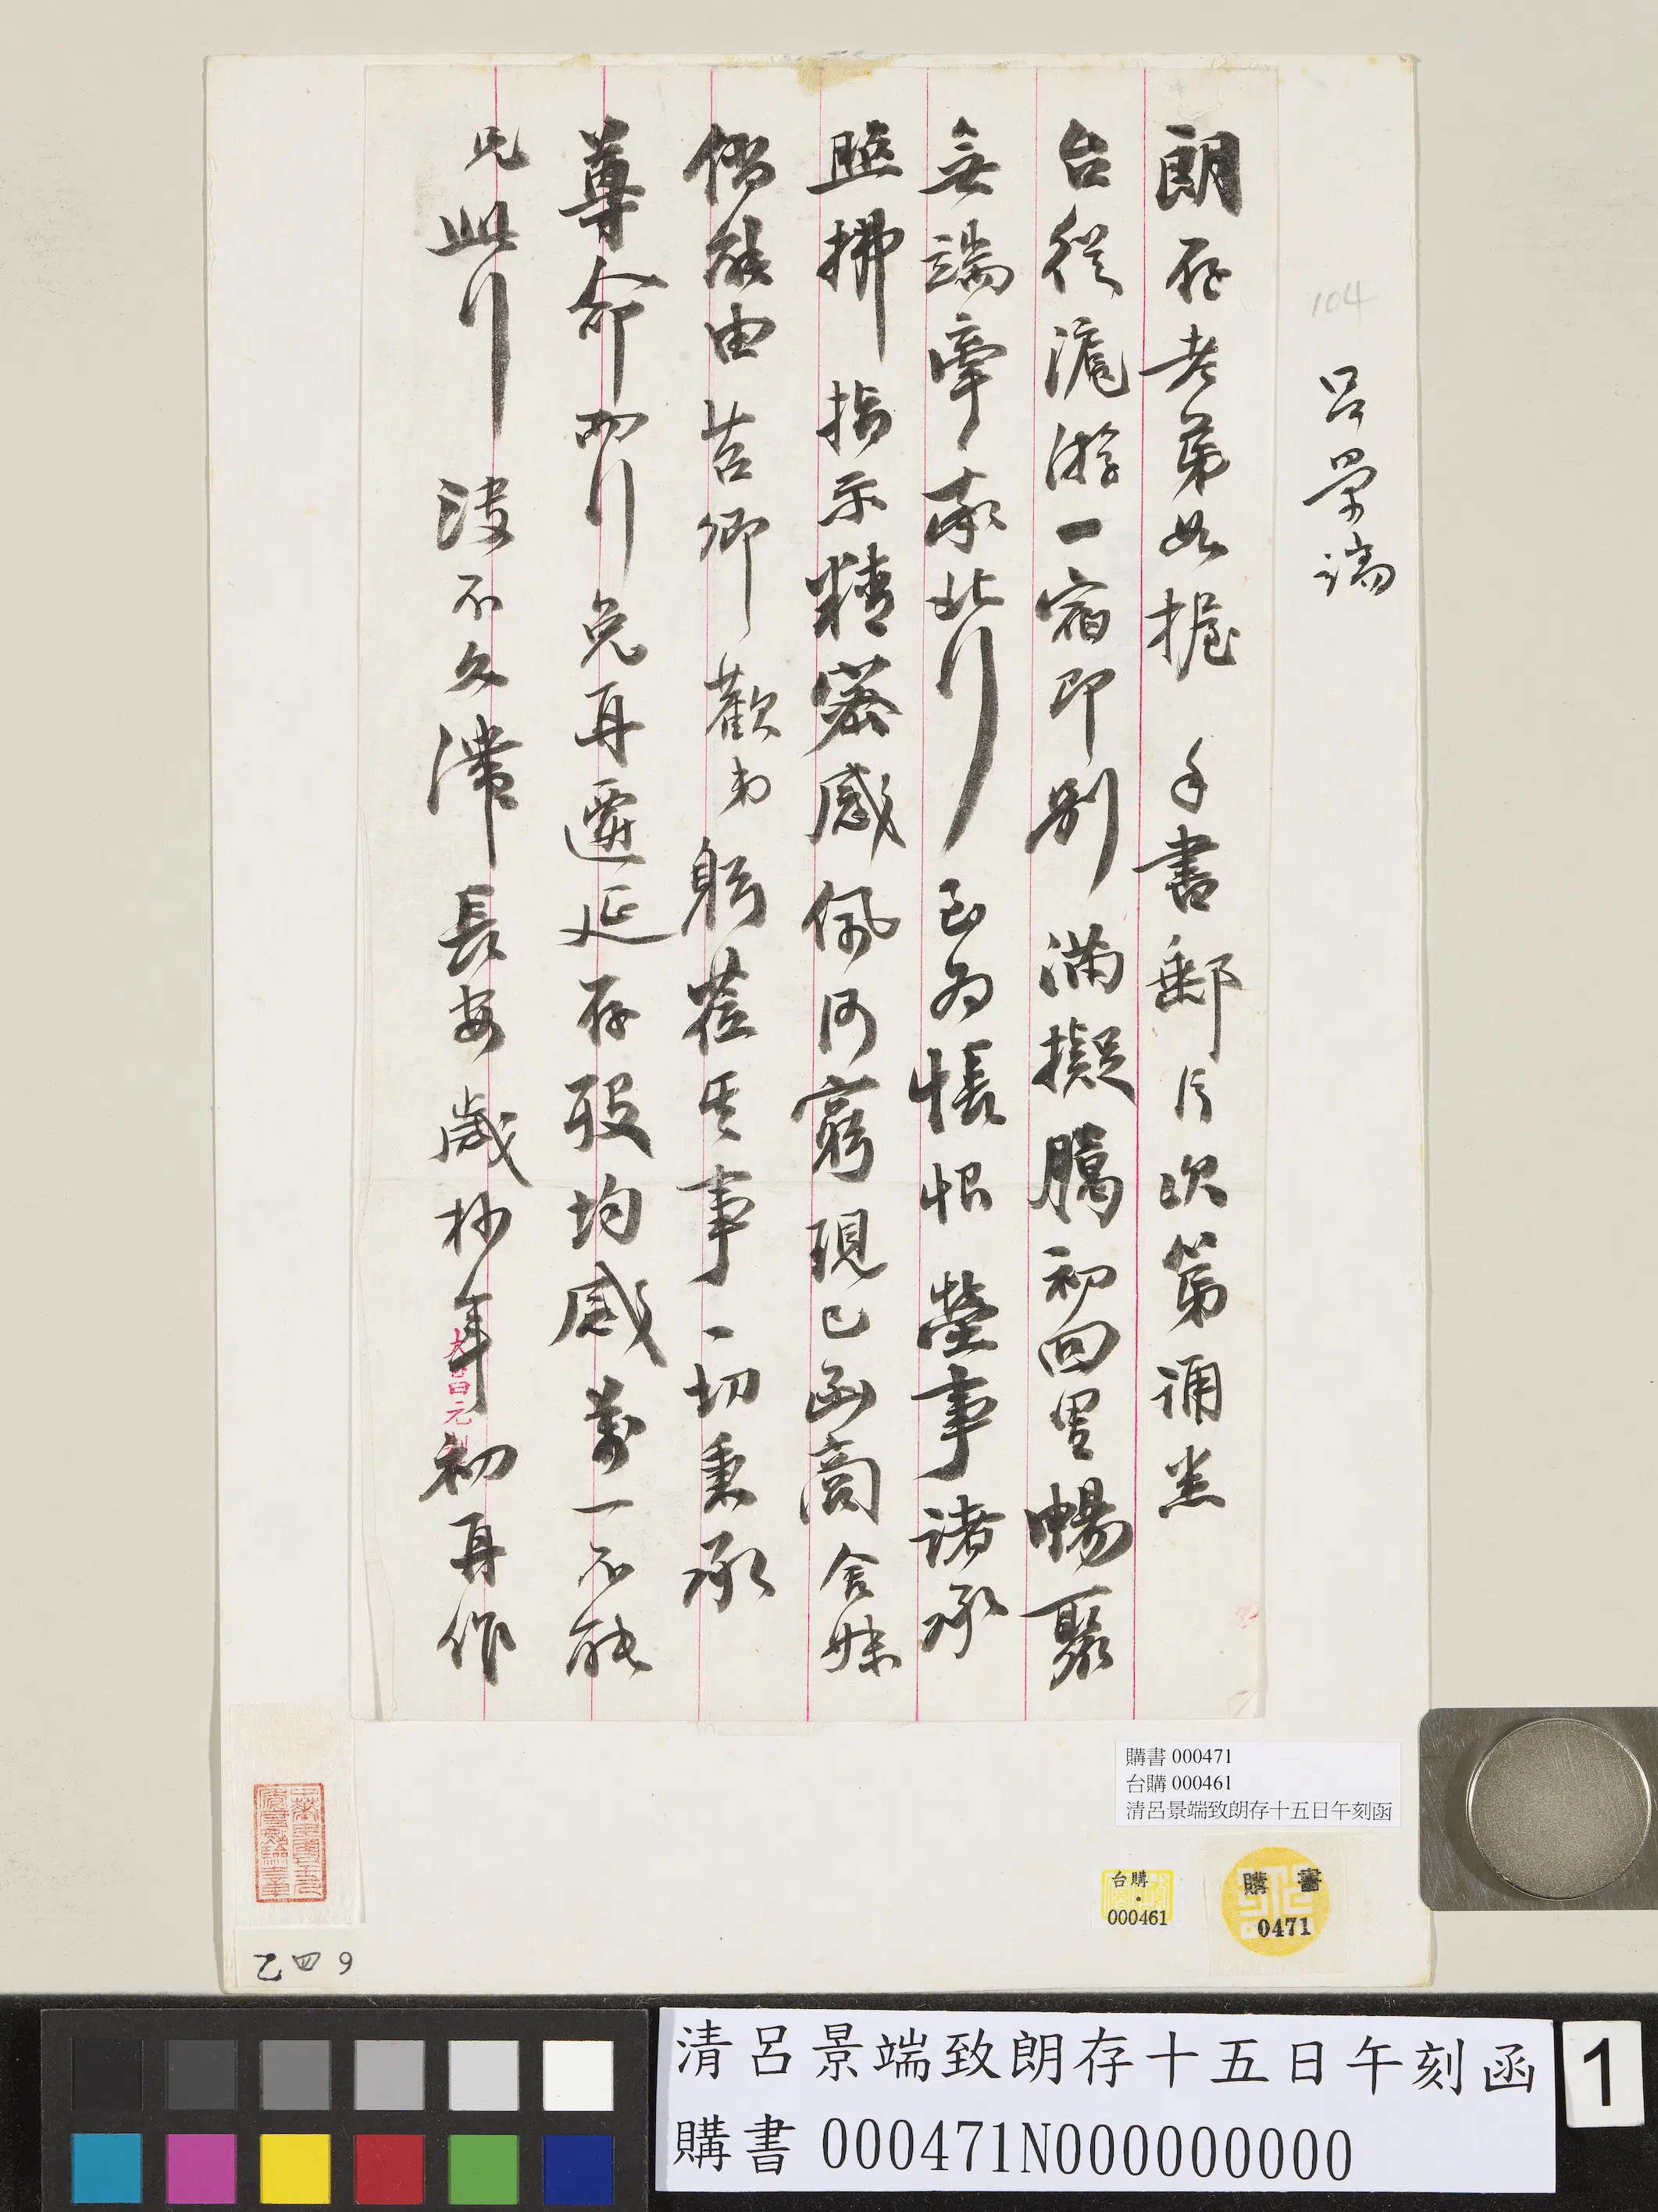 104
呂景端
朗存老弟如握 手書郵片次第誦悉
台從滬游一宿即別滿擬臈初回里暢聚
無端牽率北行至為悵悒塋事諸承
照拂指示精密感佩何窮現已函商舍妹
倘能由苦卿勸弟躬蒞其事一切秉承
尊命而行免再遷延存歿均感萬一不能
此行決不久滯長安歲杪年初再作
大昌元
乙四9
購書 000471
台購 000461
清呂景端致朗存十五日午刻函
台購
000461
購書
0471
清呂景端致朗存十五日午刻函
購書 000471N000000000
1